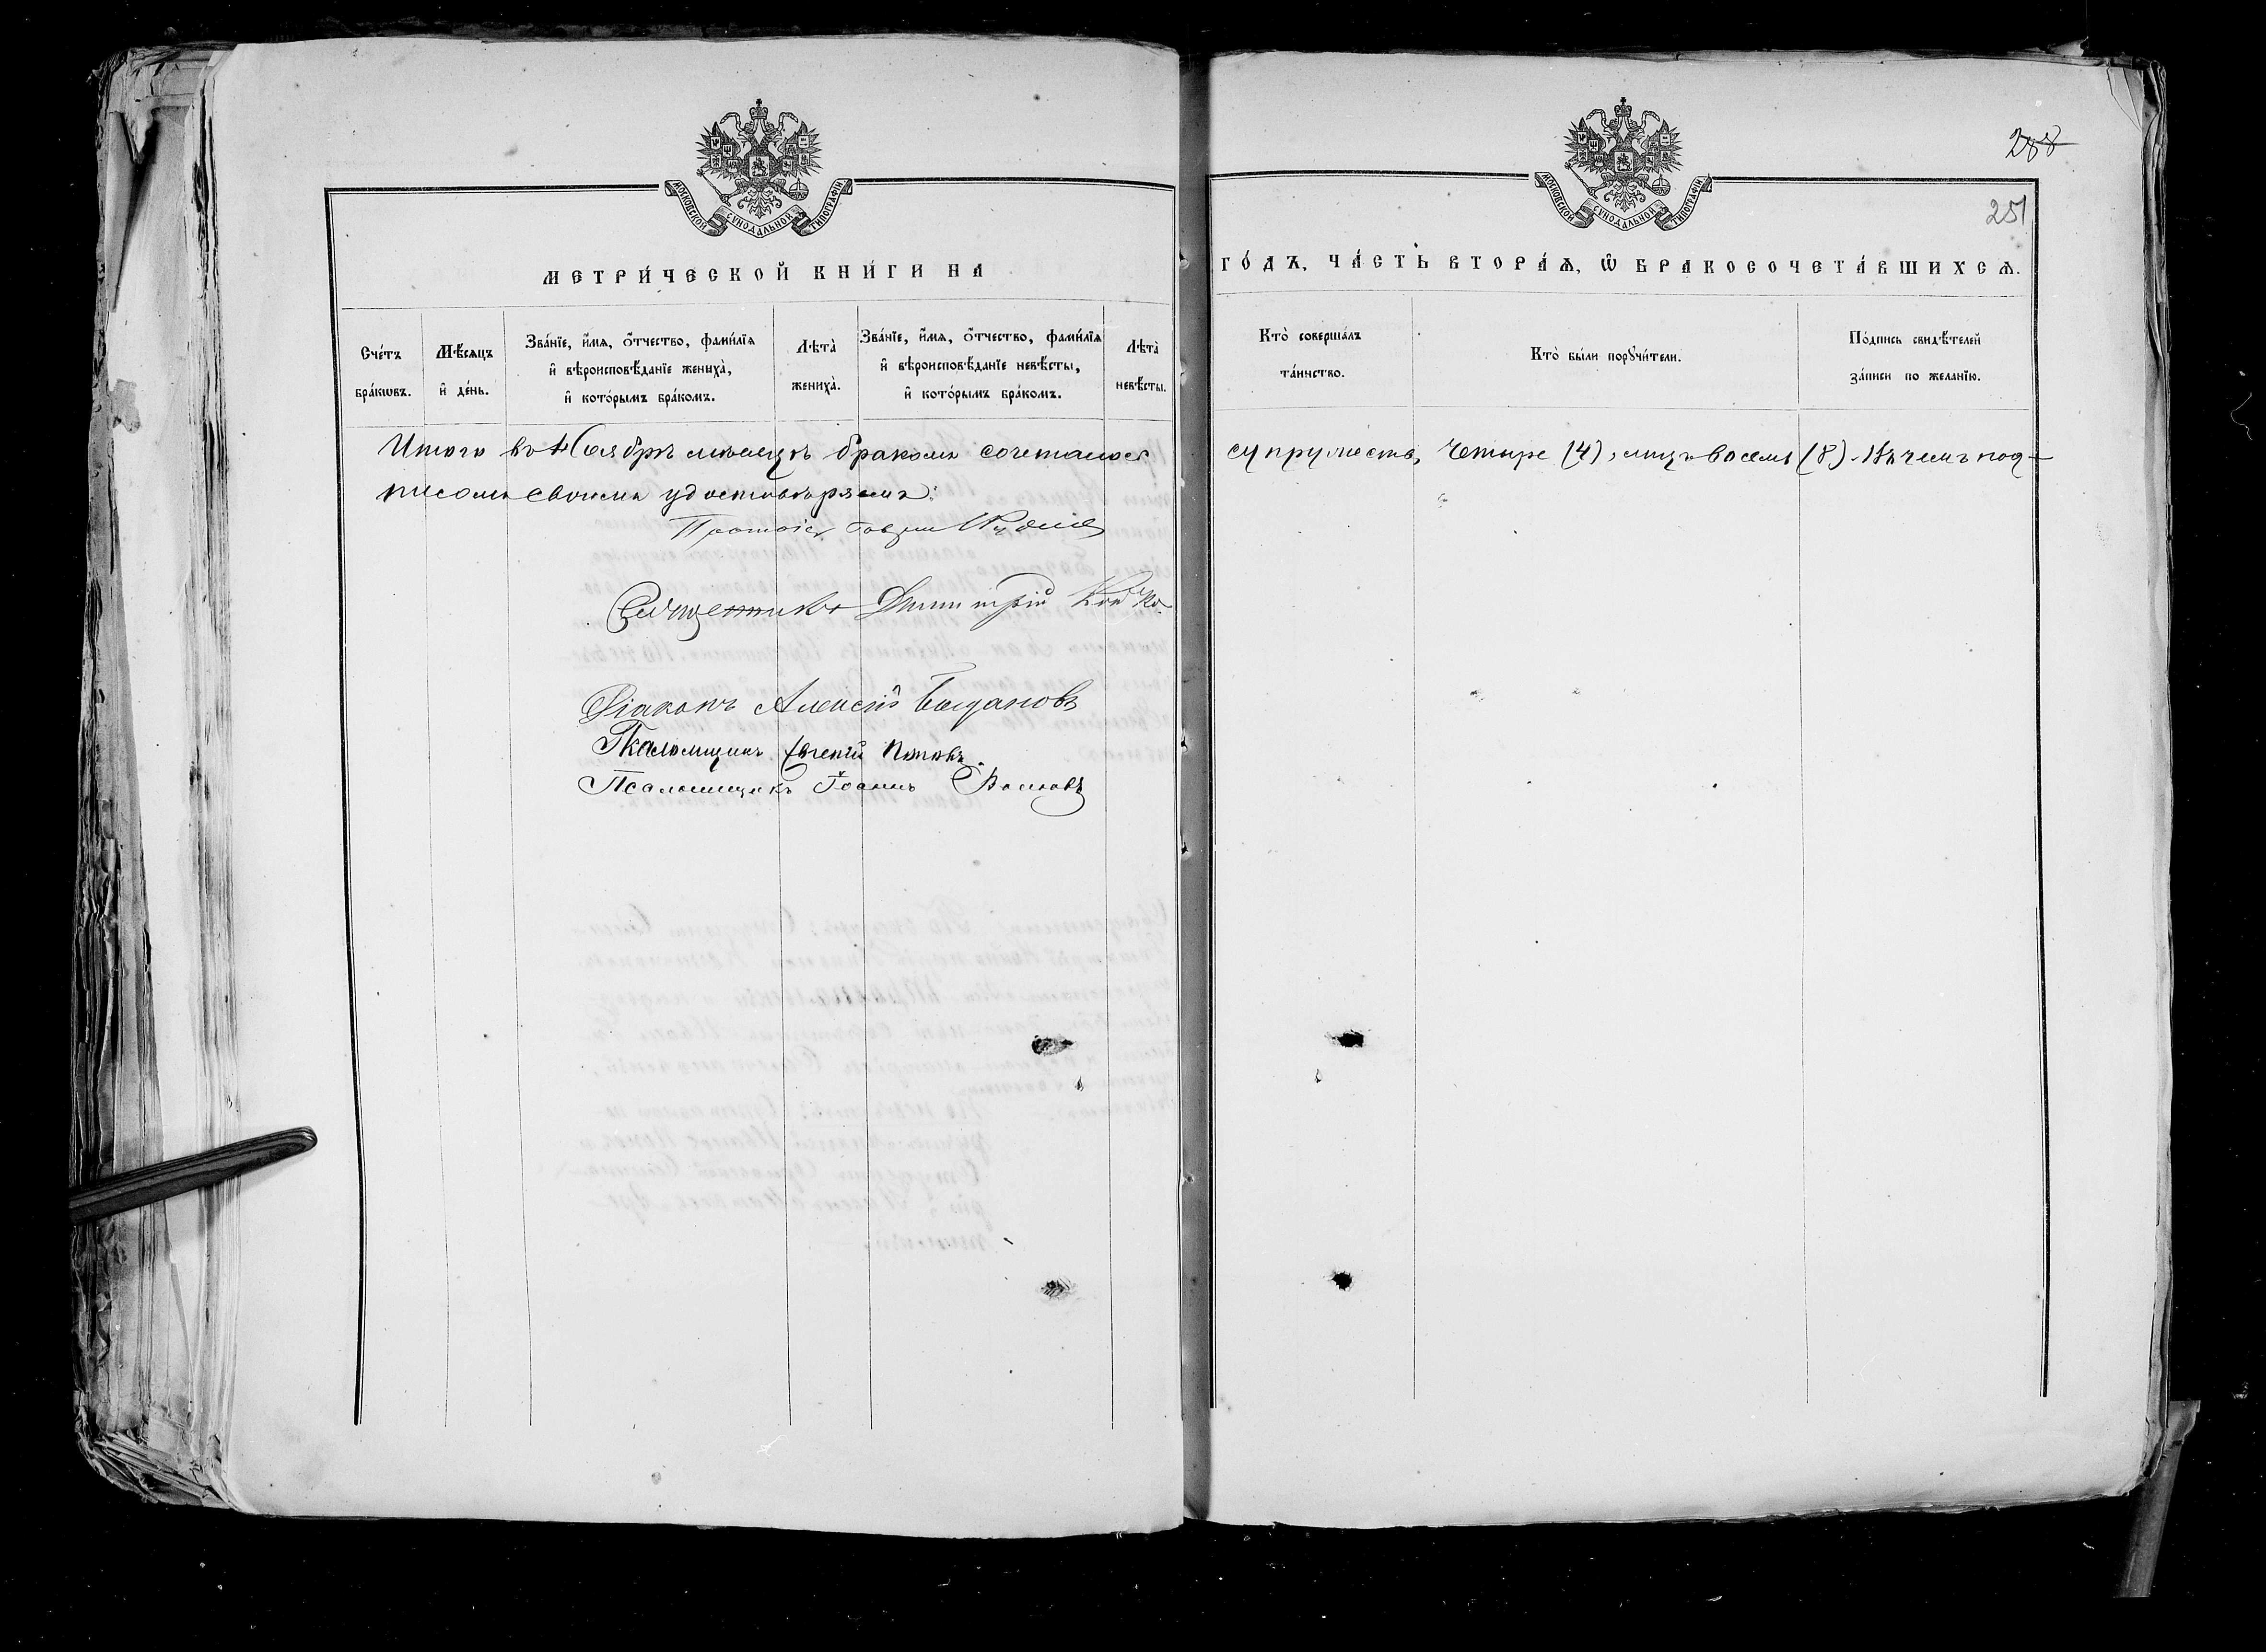 МОСКОВСКОЙ СѴНОДАЛЬНОЙ ТИПОГРАФІИ
МЕТРИ́ЧЕСКОЙ КНИ́ГИ НА
Сче́тъ бра́кѡвъ.
Мѣ́сѧцъ и҆ де́нь.
Зва́нїе, и҆́мѧ, ѻ҆́тчество, фами́лїѧ
и҆ вѣроисповѣ́данїе жениха̀,
и҆ кото́рымъ бра́комъ.
Лѣта̀ жениха̀.
Зва́нїе, и҆́мѧ, ѻ҆́тчество, фами́лїѧ
и҆ вѣроисповѣ́данїе невѣ́сты,
и҆ кото́рымъ бра́комъ.
Лѣта̀ невѣ́сты.
Итого въ Ноябрѣ мѣсяцѣ бракомъ сочеталось
писомъ своимъ удостовѣряемъ:
Священникъ Димитрій
Діаконъ Алексій Богдановъ
Псаломщикъ Евгеній Поповъ.
Псаломщикъ Іоаннъ
МОСКОВСКОЙ СѴНОДАЛЬНОЙ ТИПОГРАФІИ
288
251
ГО́ДЪ, ЧА́СТЬ ВТОРА́Ѧ, Ѽ БРАКОСОЧЕТА́ВШИХСѦ.
Кто̀ соверша́лъ
та́инство.
Кто̀ бы́ли порꙋчи́тели.
По́дпись свидѣ́телей
за́писи по жела́нїю.
супружествъ, четыре (4), лицъ восемь (8). Въ чемъ под-